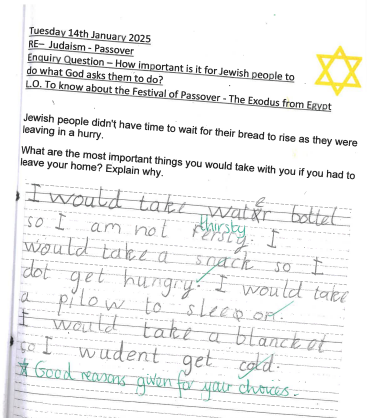 Tuesday 14th January 2025
RE– Judaism - Passover
Enquiry Question – How important is it for Jewish people to
do what God asks them to do?
L.O. To know about the Festival of Passover - The Exodus from Egypt
Jewish people didn't have time to wait for their bread to rise as they were
leaving in a hurry.
What are the most important things you would take with you if you had to
leave your home? Explain why.
e
I would take water bottel
thirsty
so I am not fersty. I
would take a snack so I
dot get hungry. I would take
a pilow to sleep on.
I would take a blancket
so I wudent get cold.
* Good reasons given for your choices.